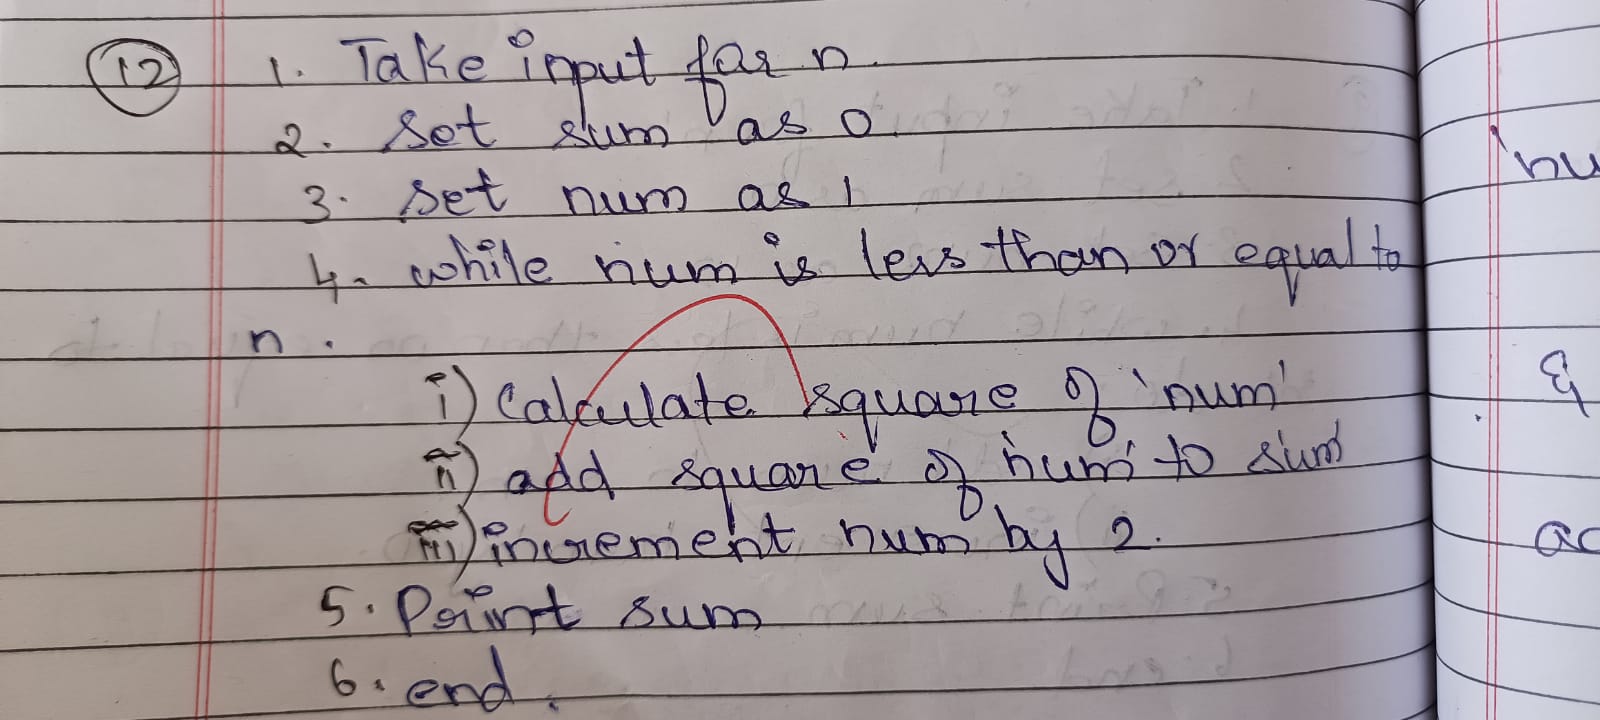 12 1. Take input for n.
2. Set sum as 0.
3. Set num as 1
4. while num is less than or equal to
n.
i) Calculate square of 'num'
ii) add square of 'num' to sum
iii) increment num by 2.
5. Print sum
6. end.
nu
&
ac